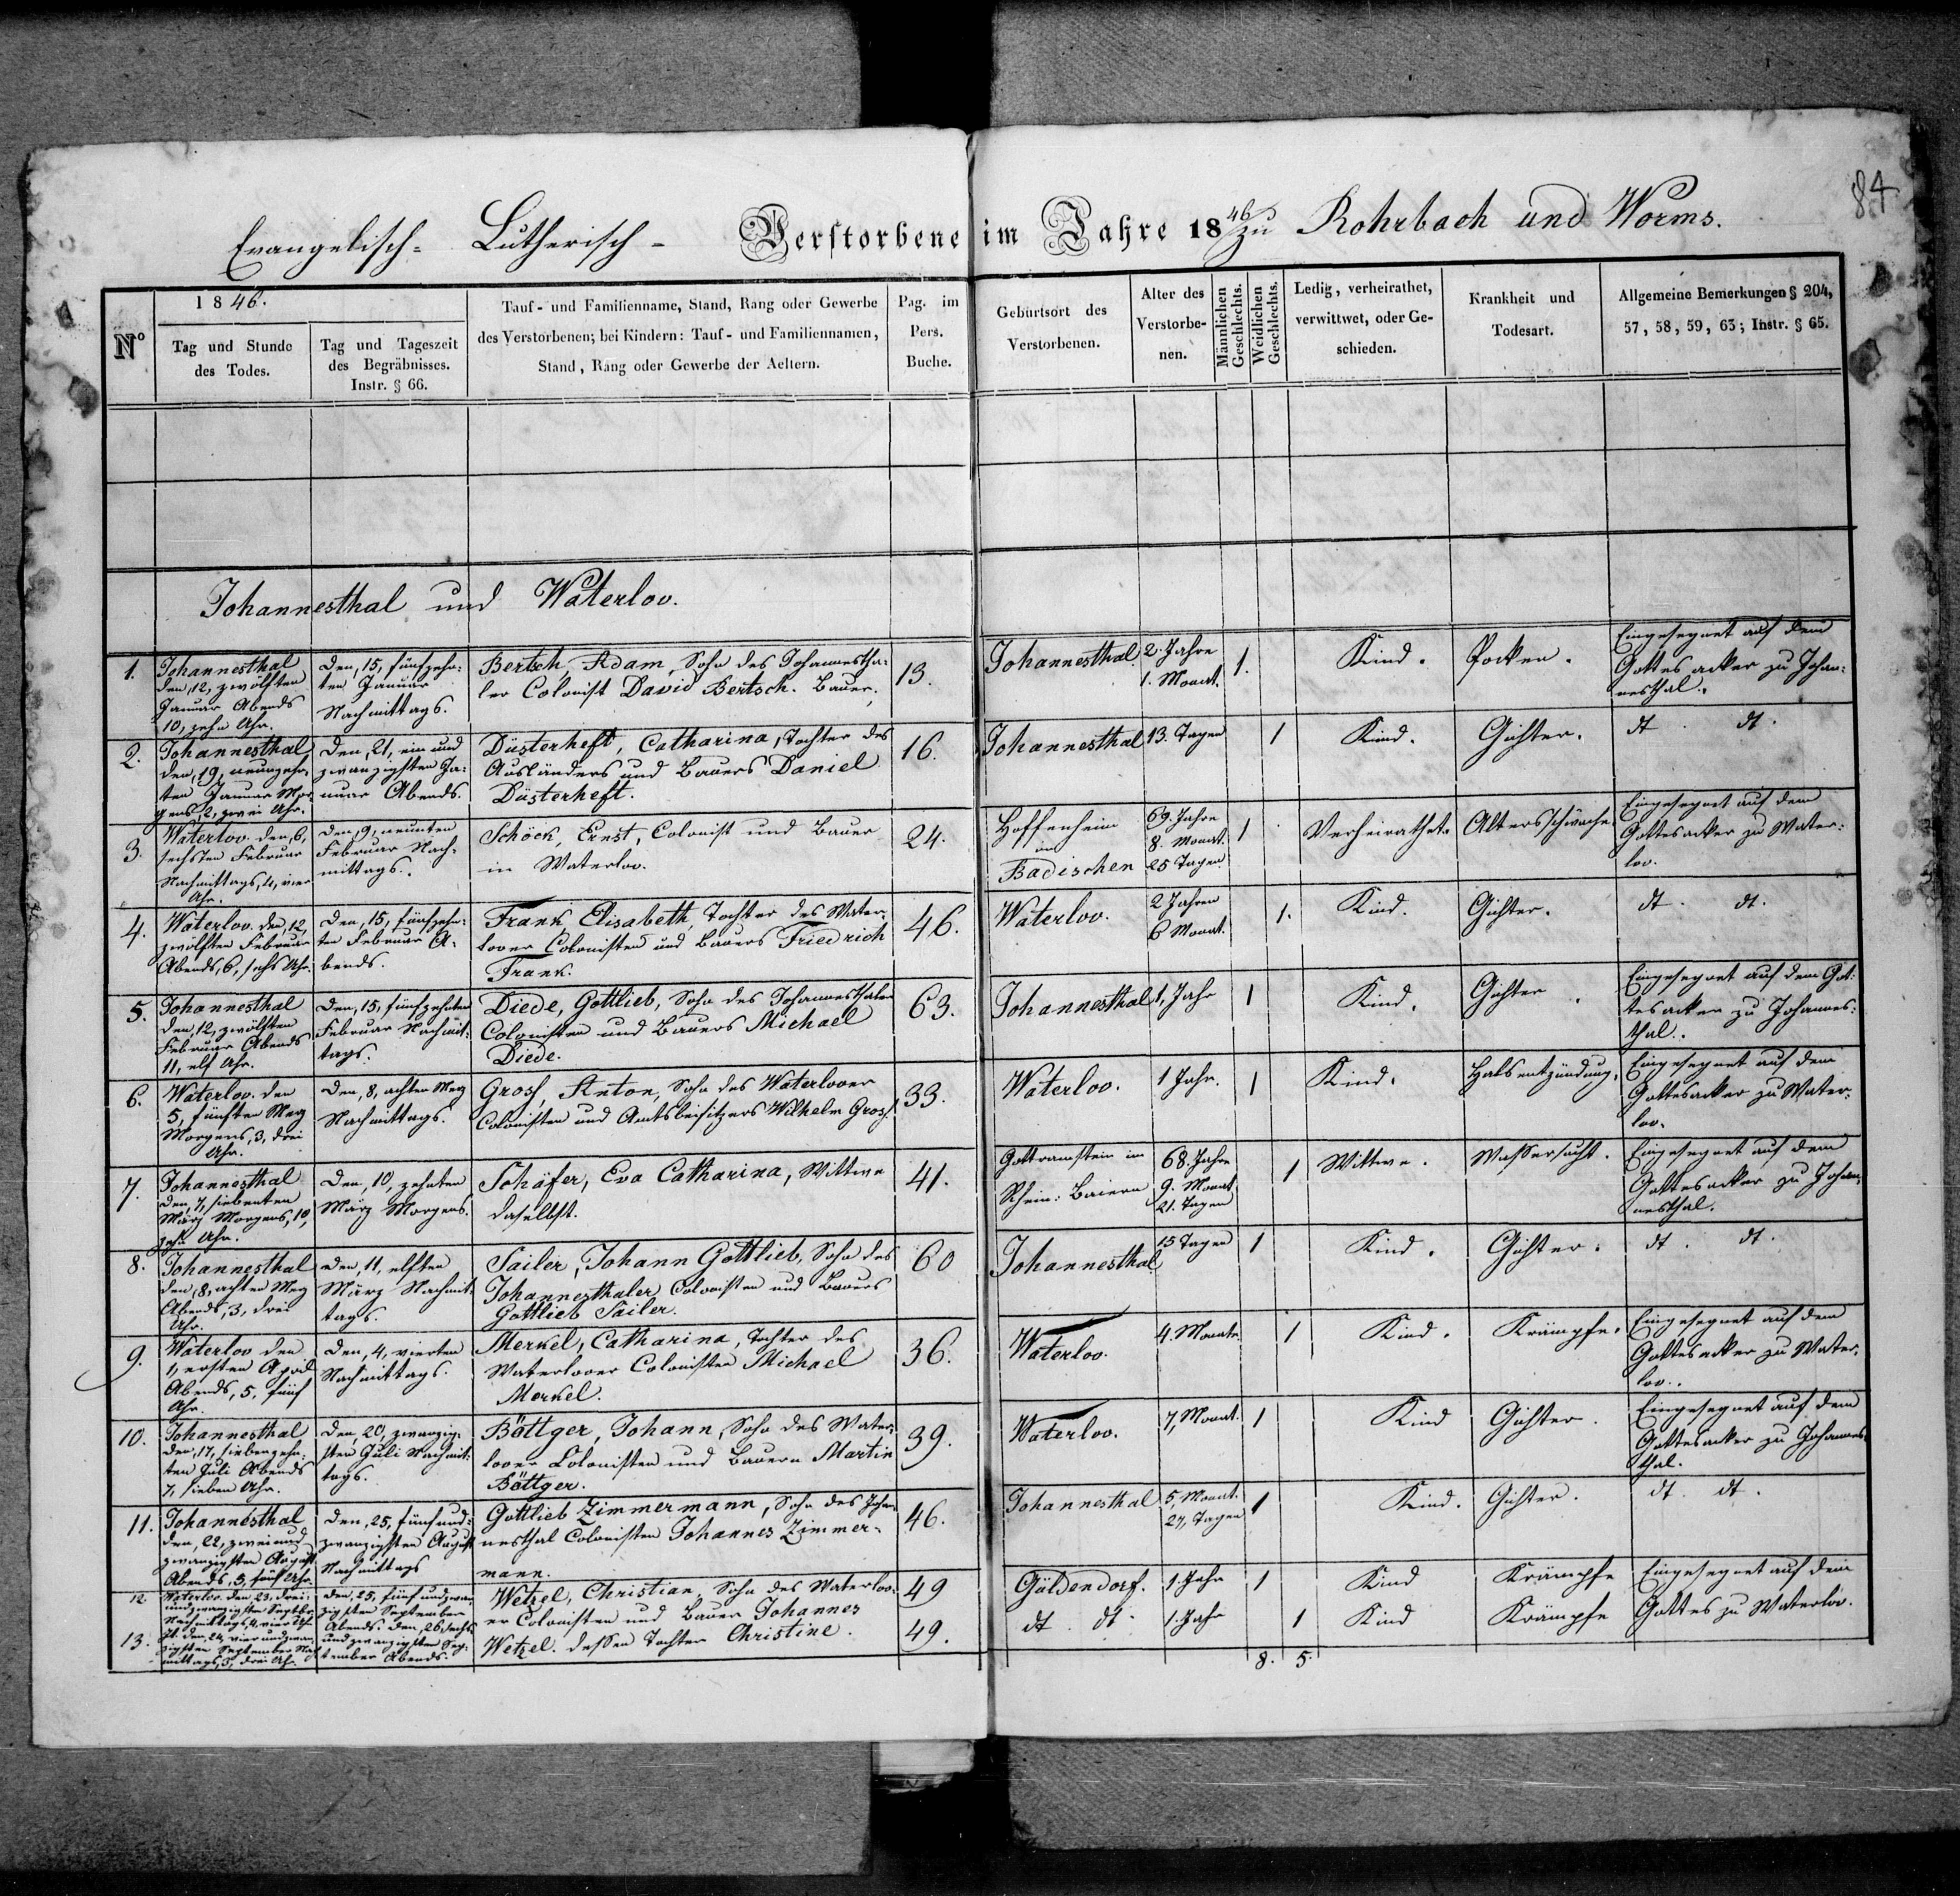 84
Evangelisch- Lutherisch- Verstorbene im Jahre 1846 zu Rohrbach und Worms.
No
1846.
Tag und Stunde
des Todes.
Tag und Tageszeit
des Begräbnisses.
Instr. § 66.
Tauf- und Familienname, Stand, Rang oder Gewerbe
des Verstorbenen; bei Kindern: Tauf- und Familiennamen,
Stand, Rang oder Gewerbe der Aeltern.
Pag. im
Pers.
Buche.
Geburtsort des
Verstorbenen.
Alter des
Verstorbe-
nen.
Männlichen
Geschlechts.
Weiblichen
Geschlechts.
Ledig, verheirathet,
verwittwet, oder Ge-
schieden.
Krankheit und
Todesart.
Allgemeine Bemerkungen § 204,
57, 58, 59, 63; Instr. § 65.
Johannesthal und Waterloo.
1.
Johannesthal
den, 12, zwölften
Januar Abends
10, zehn Uhr.
Den, 15, fünfzehn-
ten Januar
Nachmittags.
Bertsch, Adam, Sohn des Johannestha-
ler Colonist David Bertsch. Bauer.
13.
Johannesthal
2. Jahre
1. Monat.
1.
Kind.
Pocken.
Eingesegnet auf dem
Gottesacker zu Johan-
nesthal.
2.
Johannesthal
den, 19, neunzehn-
ten Januar Mor-
gens, 2, zwei Uhr.
Den, 21, ein und
zwanzigsten Ja-
nuar Abends.
Düsterheft, Catharina, Tochter des
Ausländers und Bauers Daniel
Düsterheft.
16.
Johannesthal
13. Tagen
1
Kind.
Gichter.
dt. dt.
3.
Waterloo. den, 6,
sechsten Februar
Nachmittags, 4, vier
Uhr.
Den, 9, neunten
Februar Nach-
mittags.
Schöck, Ernst, Colonist und Bauer
in Waterloo.
24.
Hoffenheim
im
Badischen
69. Jahre
8. Monat.
25 Tagen
1
Verheirathet.
Altersschwäche.
Eingesegnet auf dem
Gottesacker zu Water-
loo.
4.
Waterloo. den, 12,
zwölften Februar
Abends, 6, sechs Uhr.
Den, 15, fünfzehn-
ten Februar A-
bends.
Frank Elisabeth, Tochter des Water-
looer Colonisten und Bauers Friedrich
Frank.
46.
Waterloo.
2 Jahren
6 Monat.
1.
Kind.
Gichter.
dt. dt.
5.
Johannesthal
den, 12, zwölften
Februar Abends
11, elf Uhr.
Den, 15, fünfzehnten
Februar Nachmit-
tags.
Diede, Gottlieb, Sohn des Johannesthaler
Colonisten und Bauers Michael
Diede.
63.
Johannesthal
1, Jahr
1
Kind.
Gichter.
Eingesegnet auf dem Got-
tesacker zu Johannes-
thal.
6.
Waterloo. den
5, fünften Merz
Morgens, 3, drei
Uhr.
Den, 8, achten Merz
Nachmittags.
Gross, Anton, Sohn des Waterlooer
Colonisten und Amtsbeisitzers Wilhelm Gross.
33.
Waterloo.
1 Jahr.
1
Kind.
Halsentzündung.
Eingesegnet auf dem
Gottesacker zu Water-
loo.
7.
Johannesthal
den, 7, siebenten
März Morgens, 10,
zehn Uhr.
Den, 10, zehnten
März Morgens.
Schäfer, Eva Catharina, Wittwe
daselbst.
41.
Gottramstein im
Rhein-Baiern
68. Jahre
9. Monat
21. Tagen
1
Wittwe.
Wassersucht.
Eingesegnet auf dem
Gottesacker zu Johan-
nesthal.
8.
Johannesthal
den, 8, achten Merz
Abends, 3, drei
Uhr.
Den, 11, elften
März Nachmit-
tags.
Sailer, Johann Gottlieb, Sohn des
Johannesthaler Colonisten und Bauers
Gottlieb Sailer.
60
Johannesthal
15 Tagen
1
Kind.
Gichter.
dt. dt.
9.
Waterloo den
1, ersten April
Abends, 5, fünf
Uhr.
Den, 4, vierten
Nachmittags.
Merkel, Catharina, Tochter des
Waterlooer Colonisten Michael
Merkel.
36.
Waterloo.
4. Monate
1
Kind.
Krämpfe.
Eingesegnet auf dem
Gottesacker zu Water-
loo.
10.
Johannesthal
den, 17, siebenzehn-
ten Juli Abends
7, sieben Uhr.
Den, 20, zwanzig-
sten Juli Nachmit-
tags.
Böttger, Johann, Sohn des Water-
looer Colonisten und Bauern Martin
Böttger.
39.
Waterloo.
7, Monat.
1
Kind
Gichter.
Eingesegnet auf dem
Gottesacker zu Johannes-
thal.
11.
Johannesthal
den, 22, zwei und
zwanzigsten August
Abends, 5, fünf Uhr.
Den, 25, fünf und
zwanzigsten August
Nachmittags
Gottlieb Zimmermann, Sohn des Johan-
nesthal Colonisten Johannes Zimmer-
mann.
46.
Johannesthal
5, Monat.
27, Tagen
1
Kind.
Gichter.
dt. dt.
12.
Waterloo. den 23, drei
und zwanzigsten Septbr
Nachmittags, 4, vier Uhr
Den, 25, fünf und zwan-
zigsten September
Abends.
Wetzel, Christian, Sohn des Waterloo-
er Colonisten und Bauer Johannes
49
Güldendorf.
1. Jahr
1
Kind
Krämpfe
Eingesegnet auf dem
13.
dt. den, 24, vier und zwan-
zigsten September Nach-
mittags, 3, drei Uhr.
Den, 26, sechs
und zwanzigsten Sep-
tember Abends.
Wetzel. dessen Tochter Christine.
49.
dt. dt.
1. Jahr
1
Kind
Krämpfe
Gottes zu Waterloo.
8. 5.